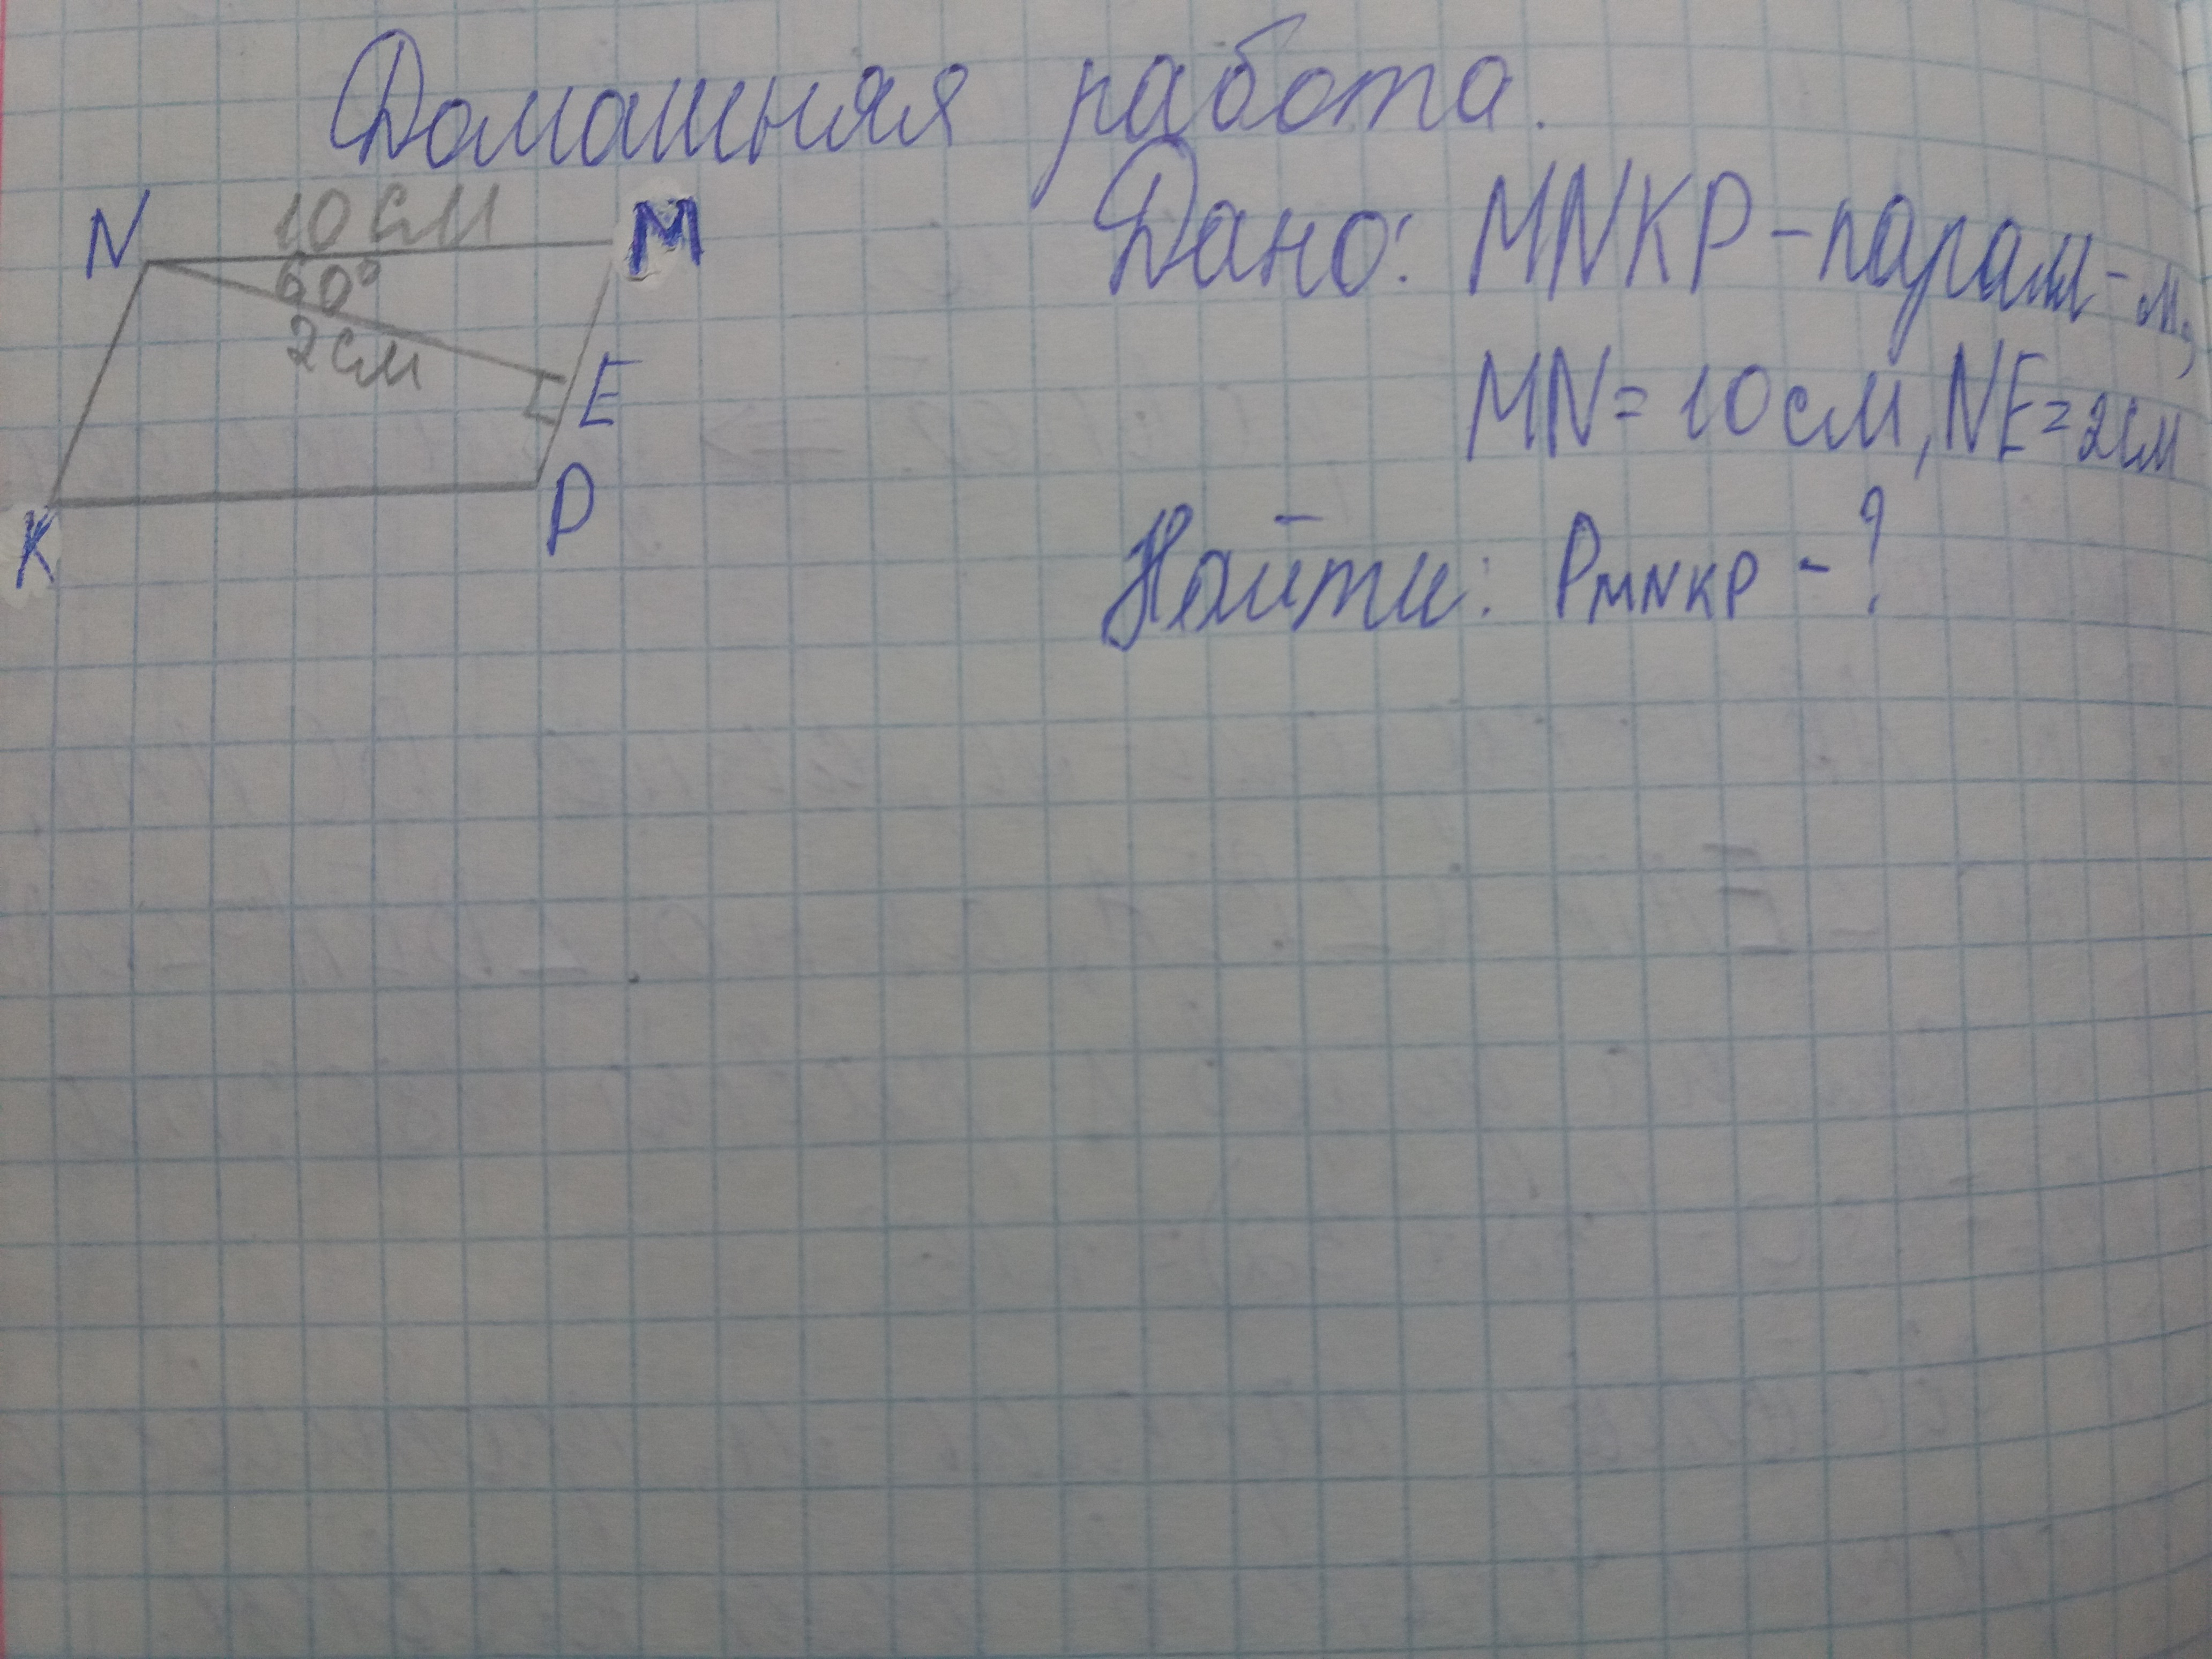 Домашняя работа.
N 10 см M
60°
2 см
E
K P
Дано: MNKP - парал-м,
MN = 10 см, NE = 2 см
Найти: PMNKP - ?